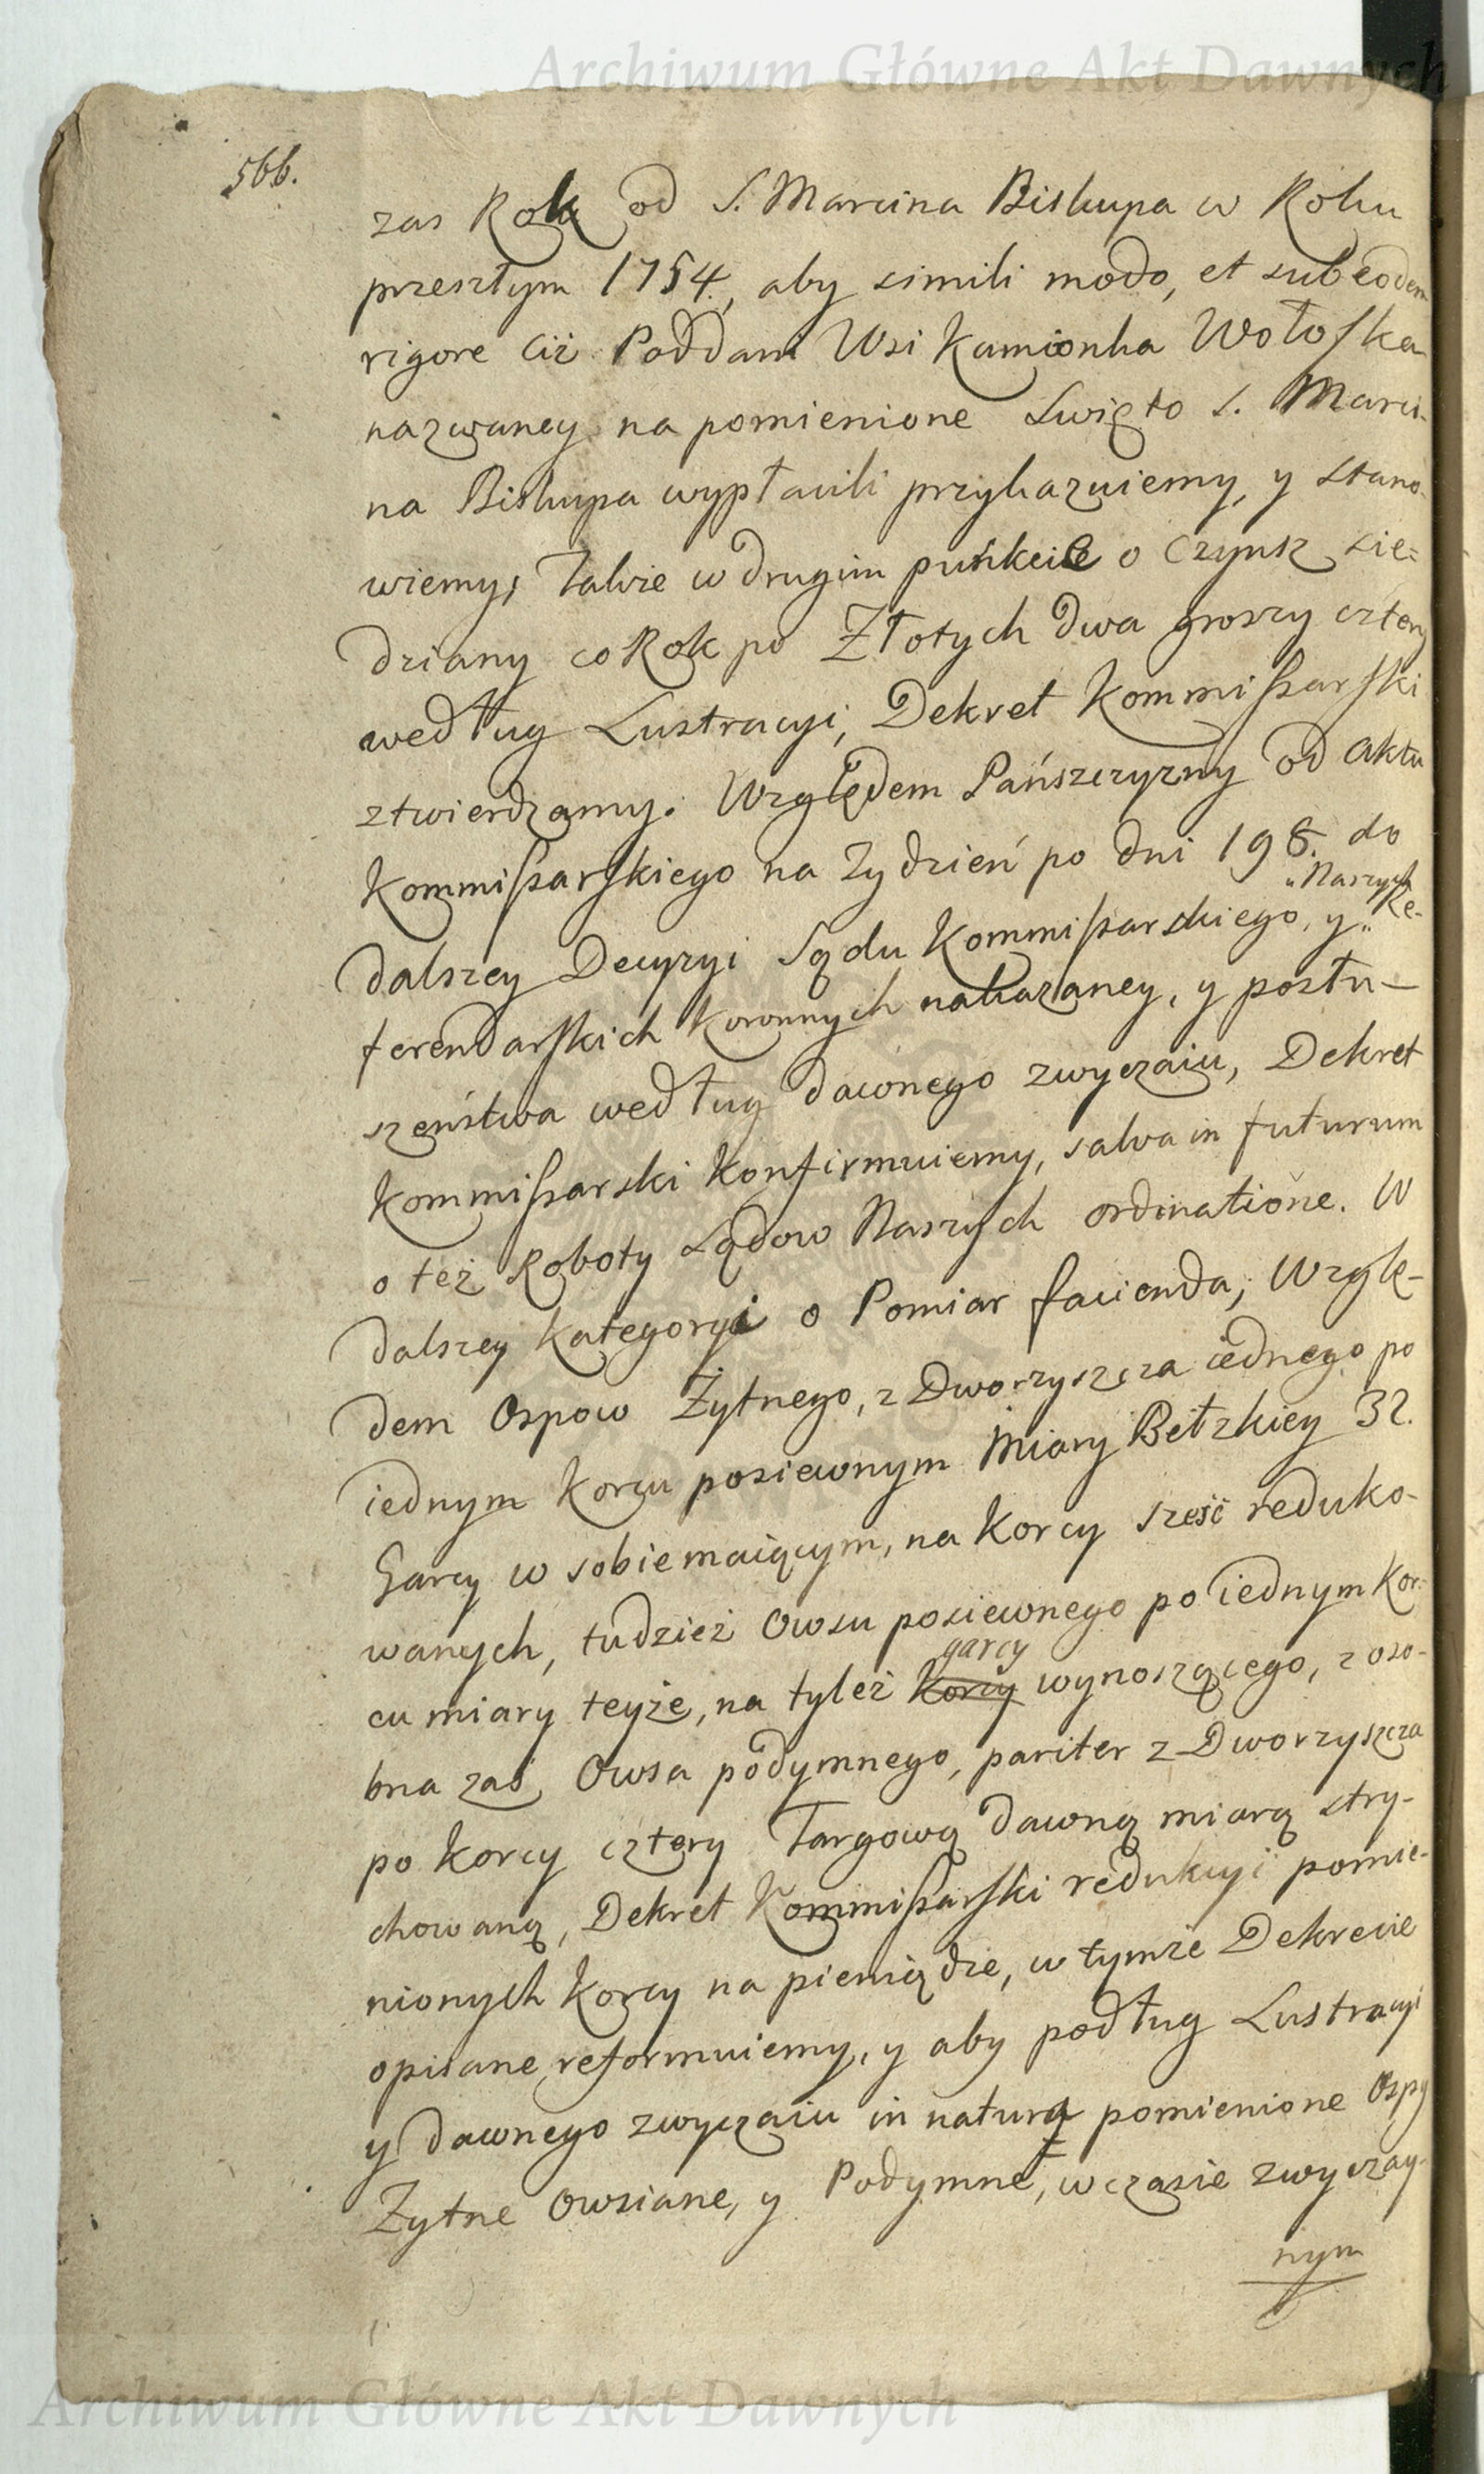 Archiwum Główne Akt Dawnych
566.
zas Rok od S. Marcina Biskupa w Roku
przeszłym 1754, aby simili modo, et sub eodem
rigore ciż Poddani Wsi Kamionka Wołoska
nazwaney na pomienione Swięto S. Marci-
na Biskupa wypłacili przykazuiemy, y stano-
wiemy; Takze w drugim punkcie o Czynsz sie=
dziany co Rok po Złotych dwa groszy cztery
według Lustracyi, Dekret Kommissarski
ztwierdzamy. Względem Pańszczyzny od aktu
Kommissarskiego na Tydzień po dni 198. do
dalszey Decyzyi Sądu Kommissarskiego, y „Naszych„ Re-
ferendarskich Koronnych nakazaney, y posłu-
szeństwa według dawnego zwyczaiu, Dekret
Kommissarski Konfirmuiemy, salva in futurum
o też Roboty Sądow Naszych ordinatione. W
dalszey Kategoryi o Pomiar facienda; Wzglę-
dem Ospow Żytnego, z Dworzyszcza iednego po
iednym Korcu posiewnym Miary Bełzkiey 32.
Garcy w sobie maiącym, na Korcy sześć reduko-
wanych, tudzież Owsu posiewnego po iednym Kor-
cu miary teyże, na tyleż Korcy garcy wynoszącego, z oso-
bna zaś Owsa podymnego, pariter z Dworzyszcza
po Korcy cztery Targową dawną miarą stry-
chowaną, Dekret Kommissarski redukcyi pomie-
nionych Korcy na pieniądze, w tymże Dekrecie
opisane reformuiemy, y aby podług Lustracyi
y dawnego zwyczaiu in natura pomienione Ospy
Zytne Owsiane, y Podymne, w czasie zwyczay-
nym
Archiwum Główne Akt Dawnych